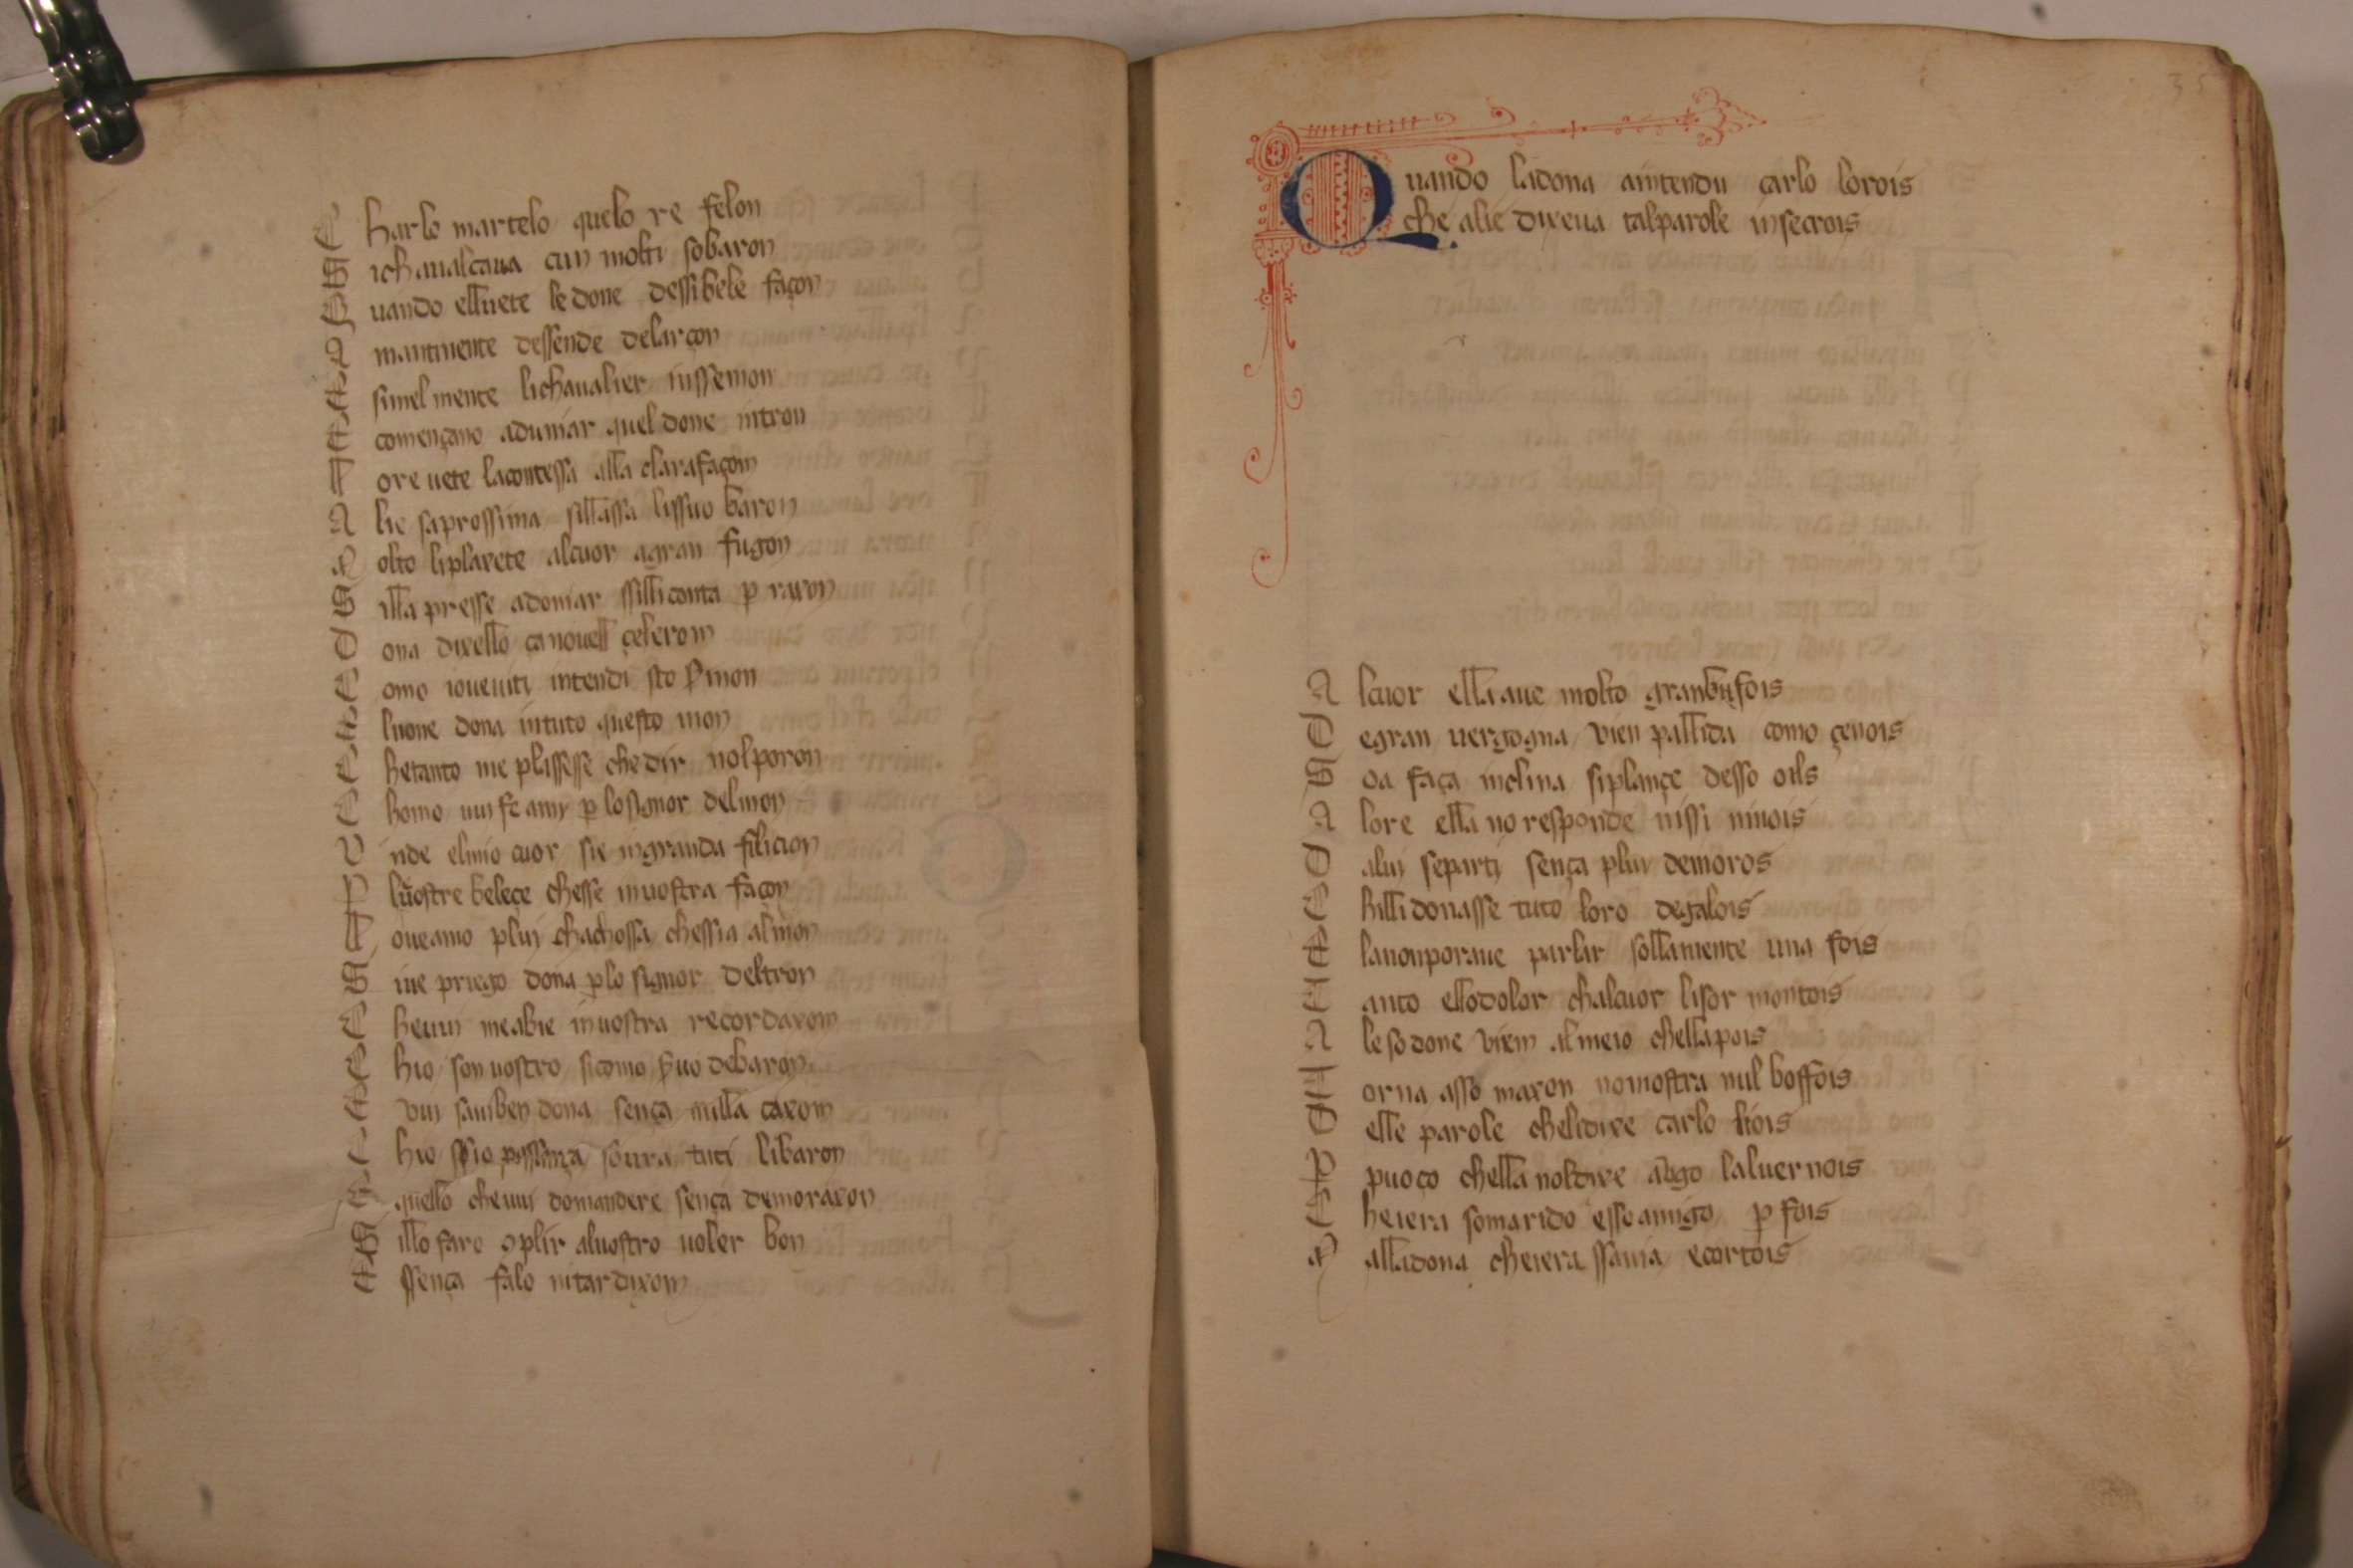 C harlo martelo quelo re felon
S ichaualcaua cun molti sobaron
Q uando elluete le done dessibele façon
A mantinente dessende delarçon
E similmente lichaualier inssemon
E començano adumar quel done intron
ll ore uete lacontessa alla clarafaçon
A lie saprossima sillassa lissuo baron
M olto liplaxete alcuor agran fugon
S illa presse adomar ssilliconta p raxon
D ona dixello ça nouell çeleron
C omo ioueuiti intendi sto smon
E luone dona intuto questo mon
C hetanto me plassesse che dir nolporon
C homo uui fe aniy p losignor delmon
V nde elmio cuor sie ingranda filicion
P luostre beleçe chesse inuostra façon
ll oueamo plui chachossa chessia almon
S iue priego dona plo signor deltron
C heuui meabie inuostra recordaxon
C hio son uostro sicomo suo debaron
E vui sauiben dona sença nulla caxon
C hio ssio possança soura tuti libaron
E quello cheuui domandere sença demoraxon
S illo faro oplir aluostro uoler bon
E ssença falo nitardixon
35
Quando ladona aintendu carlo lorois
che alie dixeua talparole insecrois
A lcuor ella aue molto granbufois
D egran uergogna vien pallida como çenois
S oa faça inclina siplançe desso oils
A lore ella no responde nissi ninois
D alui separti sença plui demoros
C hilli donasse tuto loro degalois
E lanonporaue parlar sollamente una fois
T anto ellodolor chalcuor lisor montois
A le so done vien almeio chellapois
T orna asso maxon nomostra nul boffois
D elle parole chelidixe carlo lirois
P puoço chella noldixe algo laluernois
C heiera somarido esso amigo p fois
M alladona cheiera ssauia ecortois